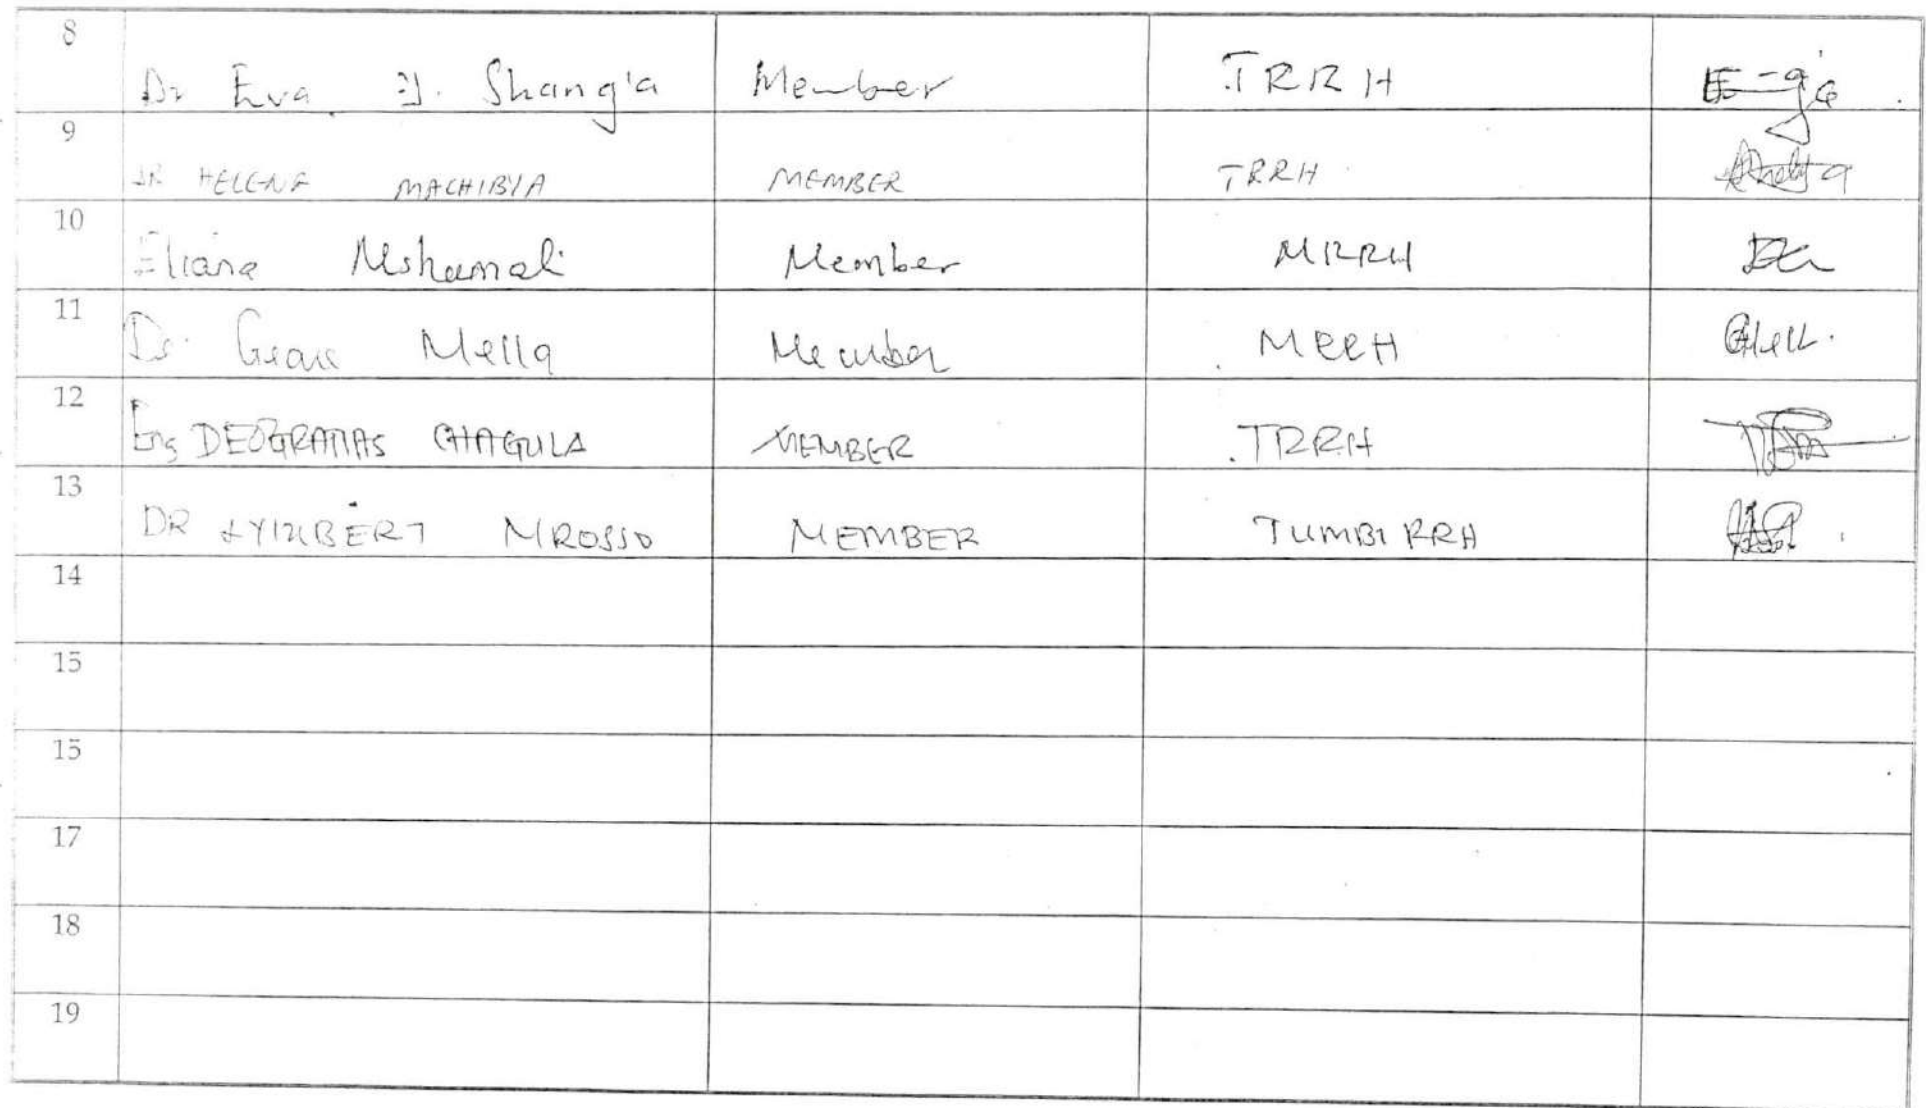 8
Dr Eva J. Shang'a Member TRRH
9
DR HELENA MACHIBYA MEMBER TRRH
10
Eliana Mshamali Member MRRH
11
Dr. Grace Mella Member MRRH
12
Eng DEOGRATIAS CHAGULA MEMBER TRRH
13
DR MROSSO MEMBER TUMBI RRH
14
15
15
17
18
19